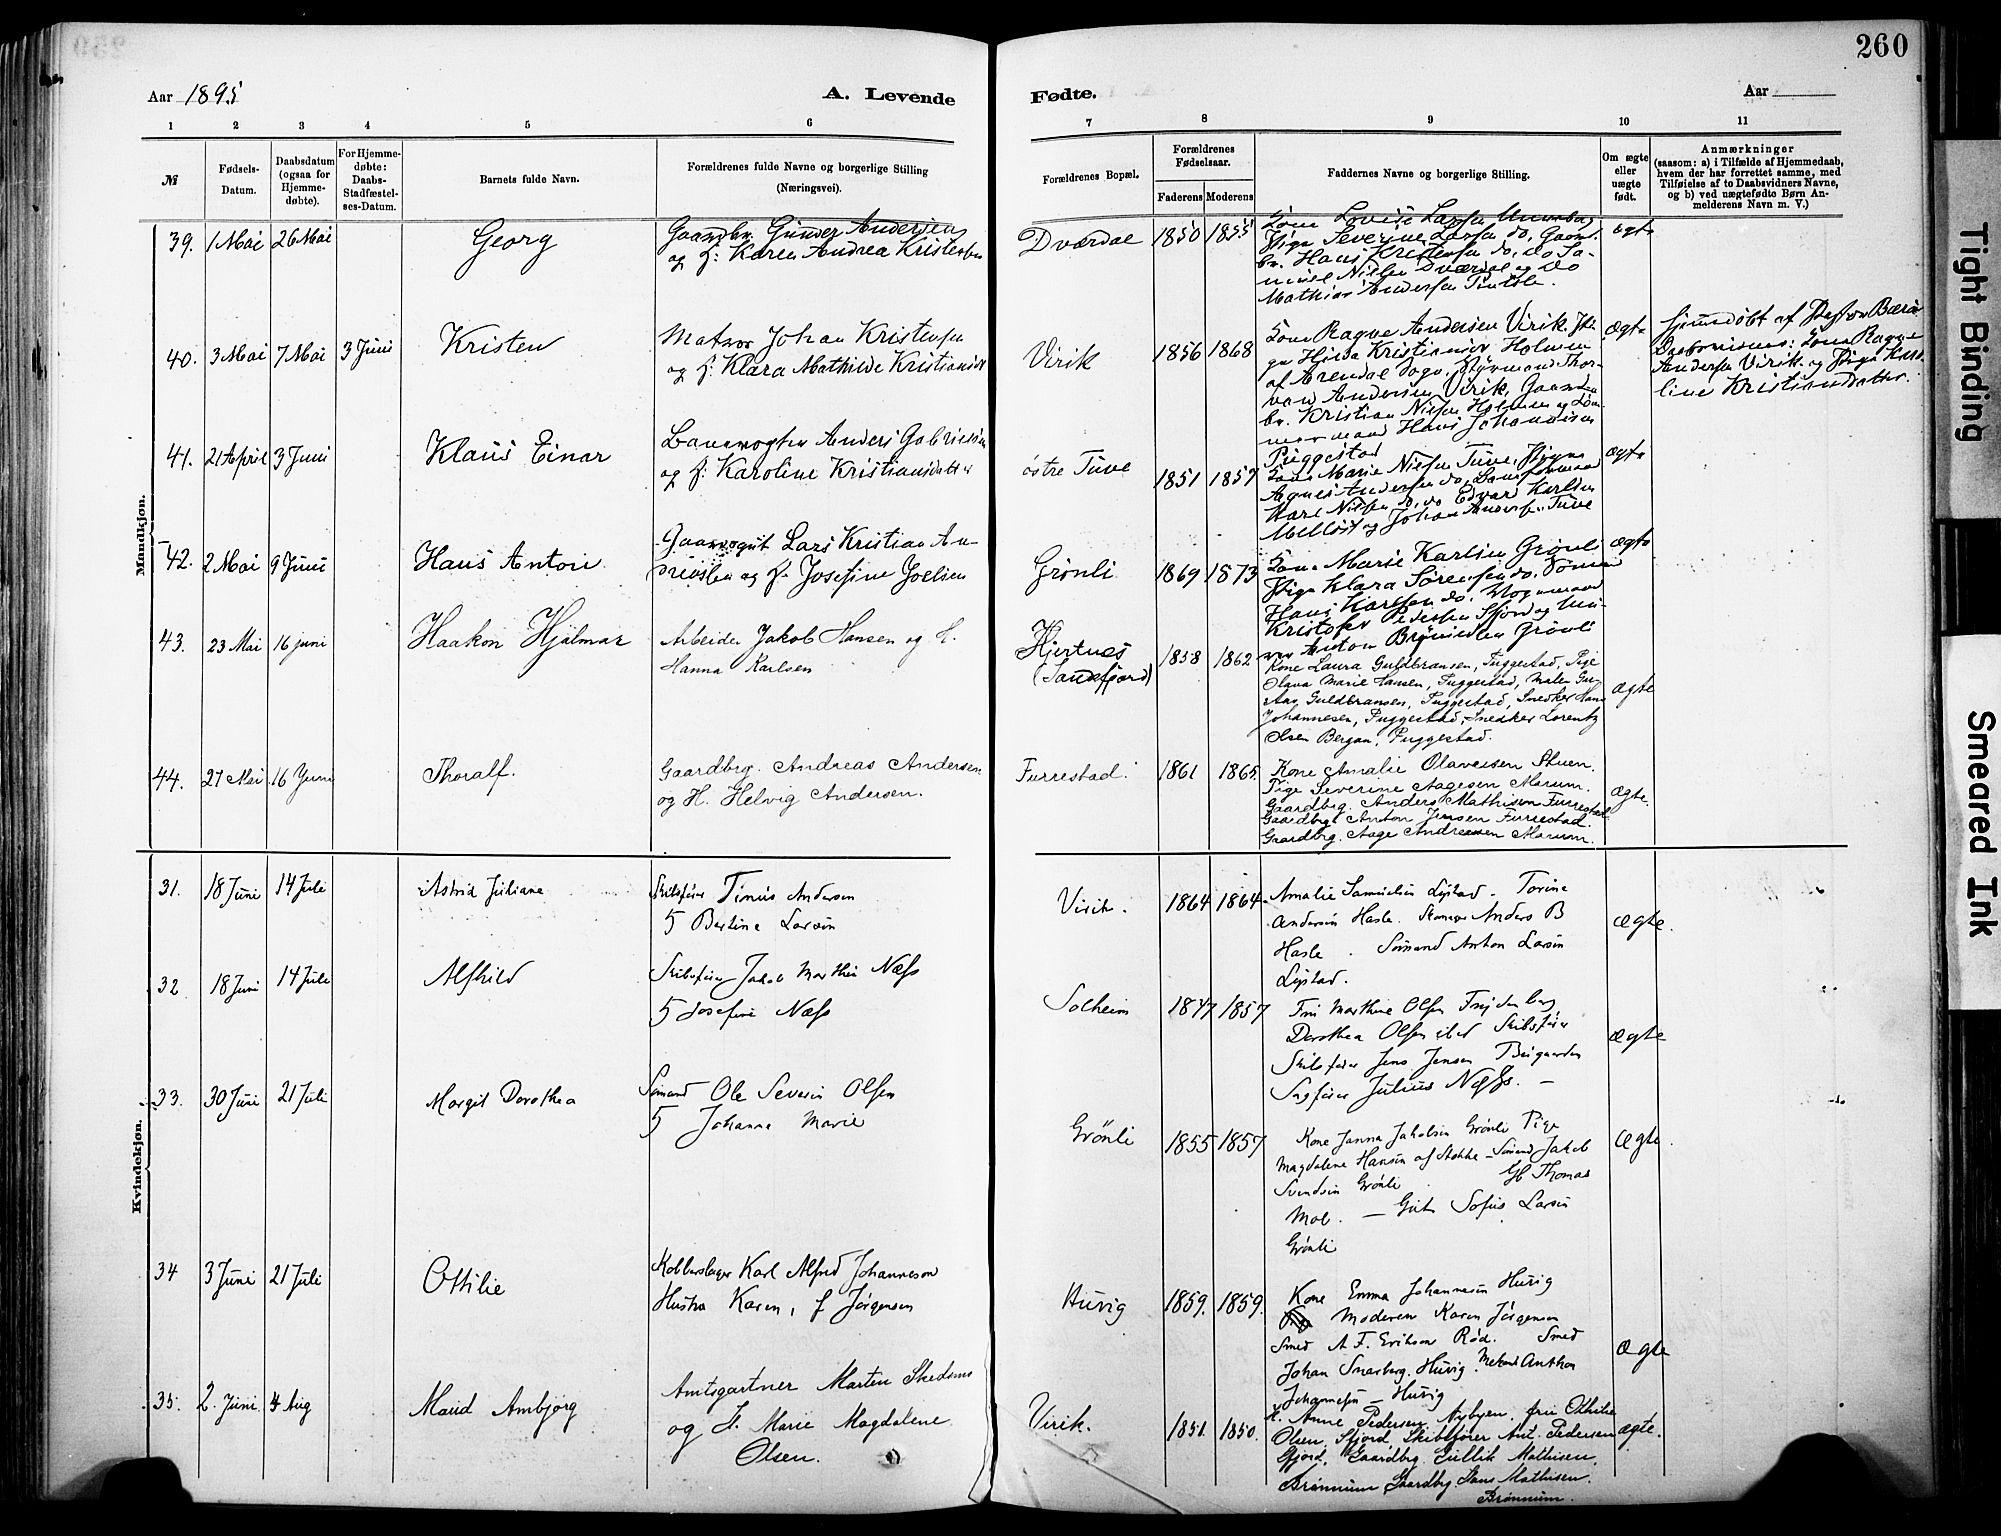 260
Aar 1895
A. Levende
Fødte.
Aar
1 2 3 4 5 6 7 8 9 10 11
№
Fødsels-
Datum.
Daabsdatum
(ogsaa for
Hjemme-
døbte).
For Hjemme-
døbte:
Daabs-
Stadfæstel-
ses-Datum.
Barnets fulde Navn.
Forældrenes fulde Navne og borgerlige Stilling
(Næringsvei).
Forældrenes Bopæl.
Forældrenes
Fødselsaar.
Faderens Moderens
Faddernes Navne og borgerlige Stilling.
Om ægte
eller
uægte
født.
Anmærkninger
(saasom: a) i Tilfælde af Hjemmedaab,
hvem der har forrettet samme, med
Tilføielse af to Daabsvidners Navne,
og b) ved uægtefødte Børn An-
melderens Navn m. V.)
Mandkjøn.
39. 1 Mai 26 Mai
Georg
Gaardbr. Gunder Andersen
og H: Karen Andrea Kristensen
Dværdal 1850 1855
Kone Lovise Larsen
Pige Severine Larsen do, Gaard-
br. Hans Kristensen do, do Sa-
muel Nielsen Dværdal og do
Mathias Andersen
ægte
40. 3 Mai 7 Mai 3 Juni
Kristen
Matros Johan Kristensen
og H: Klara Mathilde Kristiansdr
Virik 1856 1868
Kone Ragne Andersen Virik, Pi-
ge Hilda Kristiansdr Holmen
af Arendal Sogn, Styrmand Thor-
vald Andersen Virik, Gaard-
br. Kristian Nielsen Holmen og Tøm-
mermand Hans Johannesen
Puggestad
ægte
Hjemmedøbt af Pastor
Daabsvidner: Kone Ragne
Andersen Virik og Pige Karo-
line Kristiansdatter.
41. 21 April 3 Juni
Klaus Einar
Banevogter Anders Gabrielsen
og H: Karoline Kristiansdatter
østre Tuve 1851 1857
Kone Marie Nielsen Tuve, Pige
Agnes Andersen do,
Karl Nielsen do, do Edvard Karlsen
og Johan Andersen Tuve
ægte
42. 2 Mai 9 Juni
Hans Anton
Lars Kristian An-
dreassen og H. Josefine Joelsen
Grønli 1869 1873
Kone Marie Karlsen Grønli
Pige Klara Sørensen do, Tømmer
Hans Karlsen do,
Kristofer Pedersen Fjord og
Anton Grønli
ægte
43. 23 Mai 16 juni
Haakon Hjalmar
Arbeider Jakob Hansen og H.
Hanna Karlsen
Hjertnes
(Sandefjord) 1858 1862
Kone Laura Guldbransen, Puggestad, Pige
Olava Marie Hansen, Puggestad, Maler Gu-
stav Guldbransen, Puggestad, Snedker Hans
Johannesen, Puggestad, Snedker Lorentz
Olsen Bergan, Puggestad.
ægte
44. 27 Mai 16 Juni
Thoralf.
Gaardbrg. Andreas Andersen
og H. Helvig Andersen.
Furrestad. 1861 1865.
Kone Amalie Olavesen Stuen.
Pige Severine Aagesen Marum.
Gaardbrg. Anders Mathisen Furrestad.
Gaardbrg. Anton Jensen Furrestad.
Gaardbrg. Aage Andreasen Marum.
ægte.
Kvindekjøn.
31. 18 Juni 14 Juli
Astrid Juliane
Skibsfører Tinius Andersen
H Bertine Larsen
Virik. 1864 1864.
Amalie Samuelsen Lystad. Torine
Andersen Hasle. Anders B
Hasle. Sømand Anton Larsen
Lystad.
ægte.
32 18 Juni 14 Juli
Alfhild
Skibsfører Jakob Martin Næss
H Josefine Næss
Solheim 1847 1857
Frø Marthine Olsen Frydenberg
Dorothea Olsen ibd Skibsfører
Skibsfører Jens Jensen
Julius Næss. —
ægte
33. 30 Juni 21 Juli
Margit Dorothea
Sømand Ole Severin Olsen
H Johanna Marie
Grönli 1855 1857
Kone Janna Jakobsen Grönli Pige
Magdalene Hansen af Stokke – Sømand Jakob
Svendsen Grönli. Gb Thomas
Moe. — Gut Sofus Larsen
Grönli
ægte.
34 3 Juni 21 Juli
Othilie
Kobberslager Karl Alfred Johannesen
Hustru Karen, f Jørgensen
Huvig 1859. 1859.
Kone Emma Johannesen Huvig
Moderen Karen Jörgensen
Smed A. F. Eriksen Röd. Smed
Johan Snarberg, Huvig. Anthon
Johannesen – Huvig
ægte
35. 2. Juni 4 Aug
Maud Ambjørg
Amtsgartner Marten Skedsmo
og H. Marie Magdalene
Olsen.
Virik. 1851. 1850.
K. Anne Pedersen, Nybyen, frk Othilie
Olsen, Fjord, Skibsfører Ant. Pedersen
Fjord, Gaardbrg. Gullik Mathisen,
Brønnum Gaardbrg. Hans Mathisen.
Brønnum.
ægte.
Tight Binding
Smeared Ink